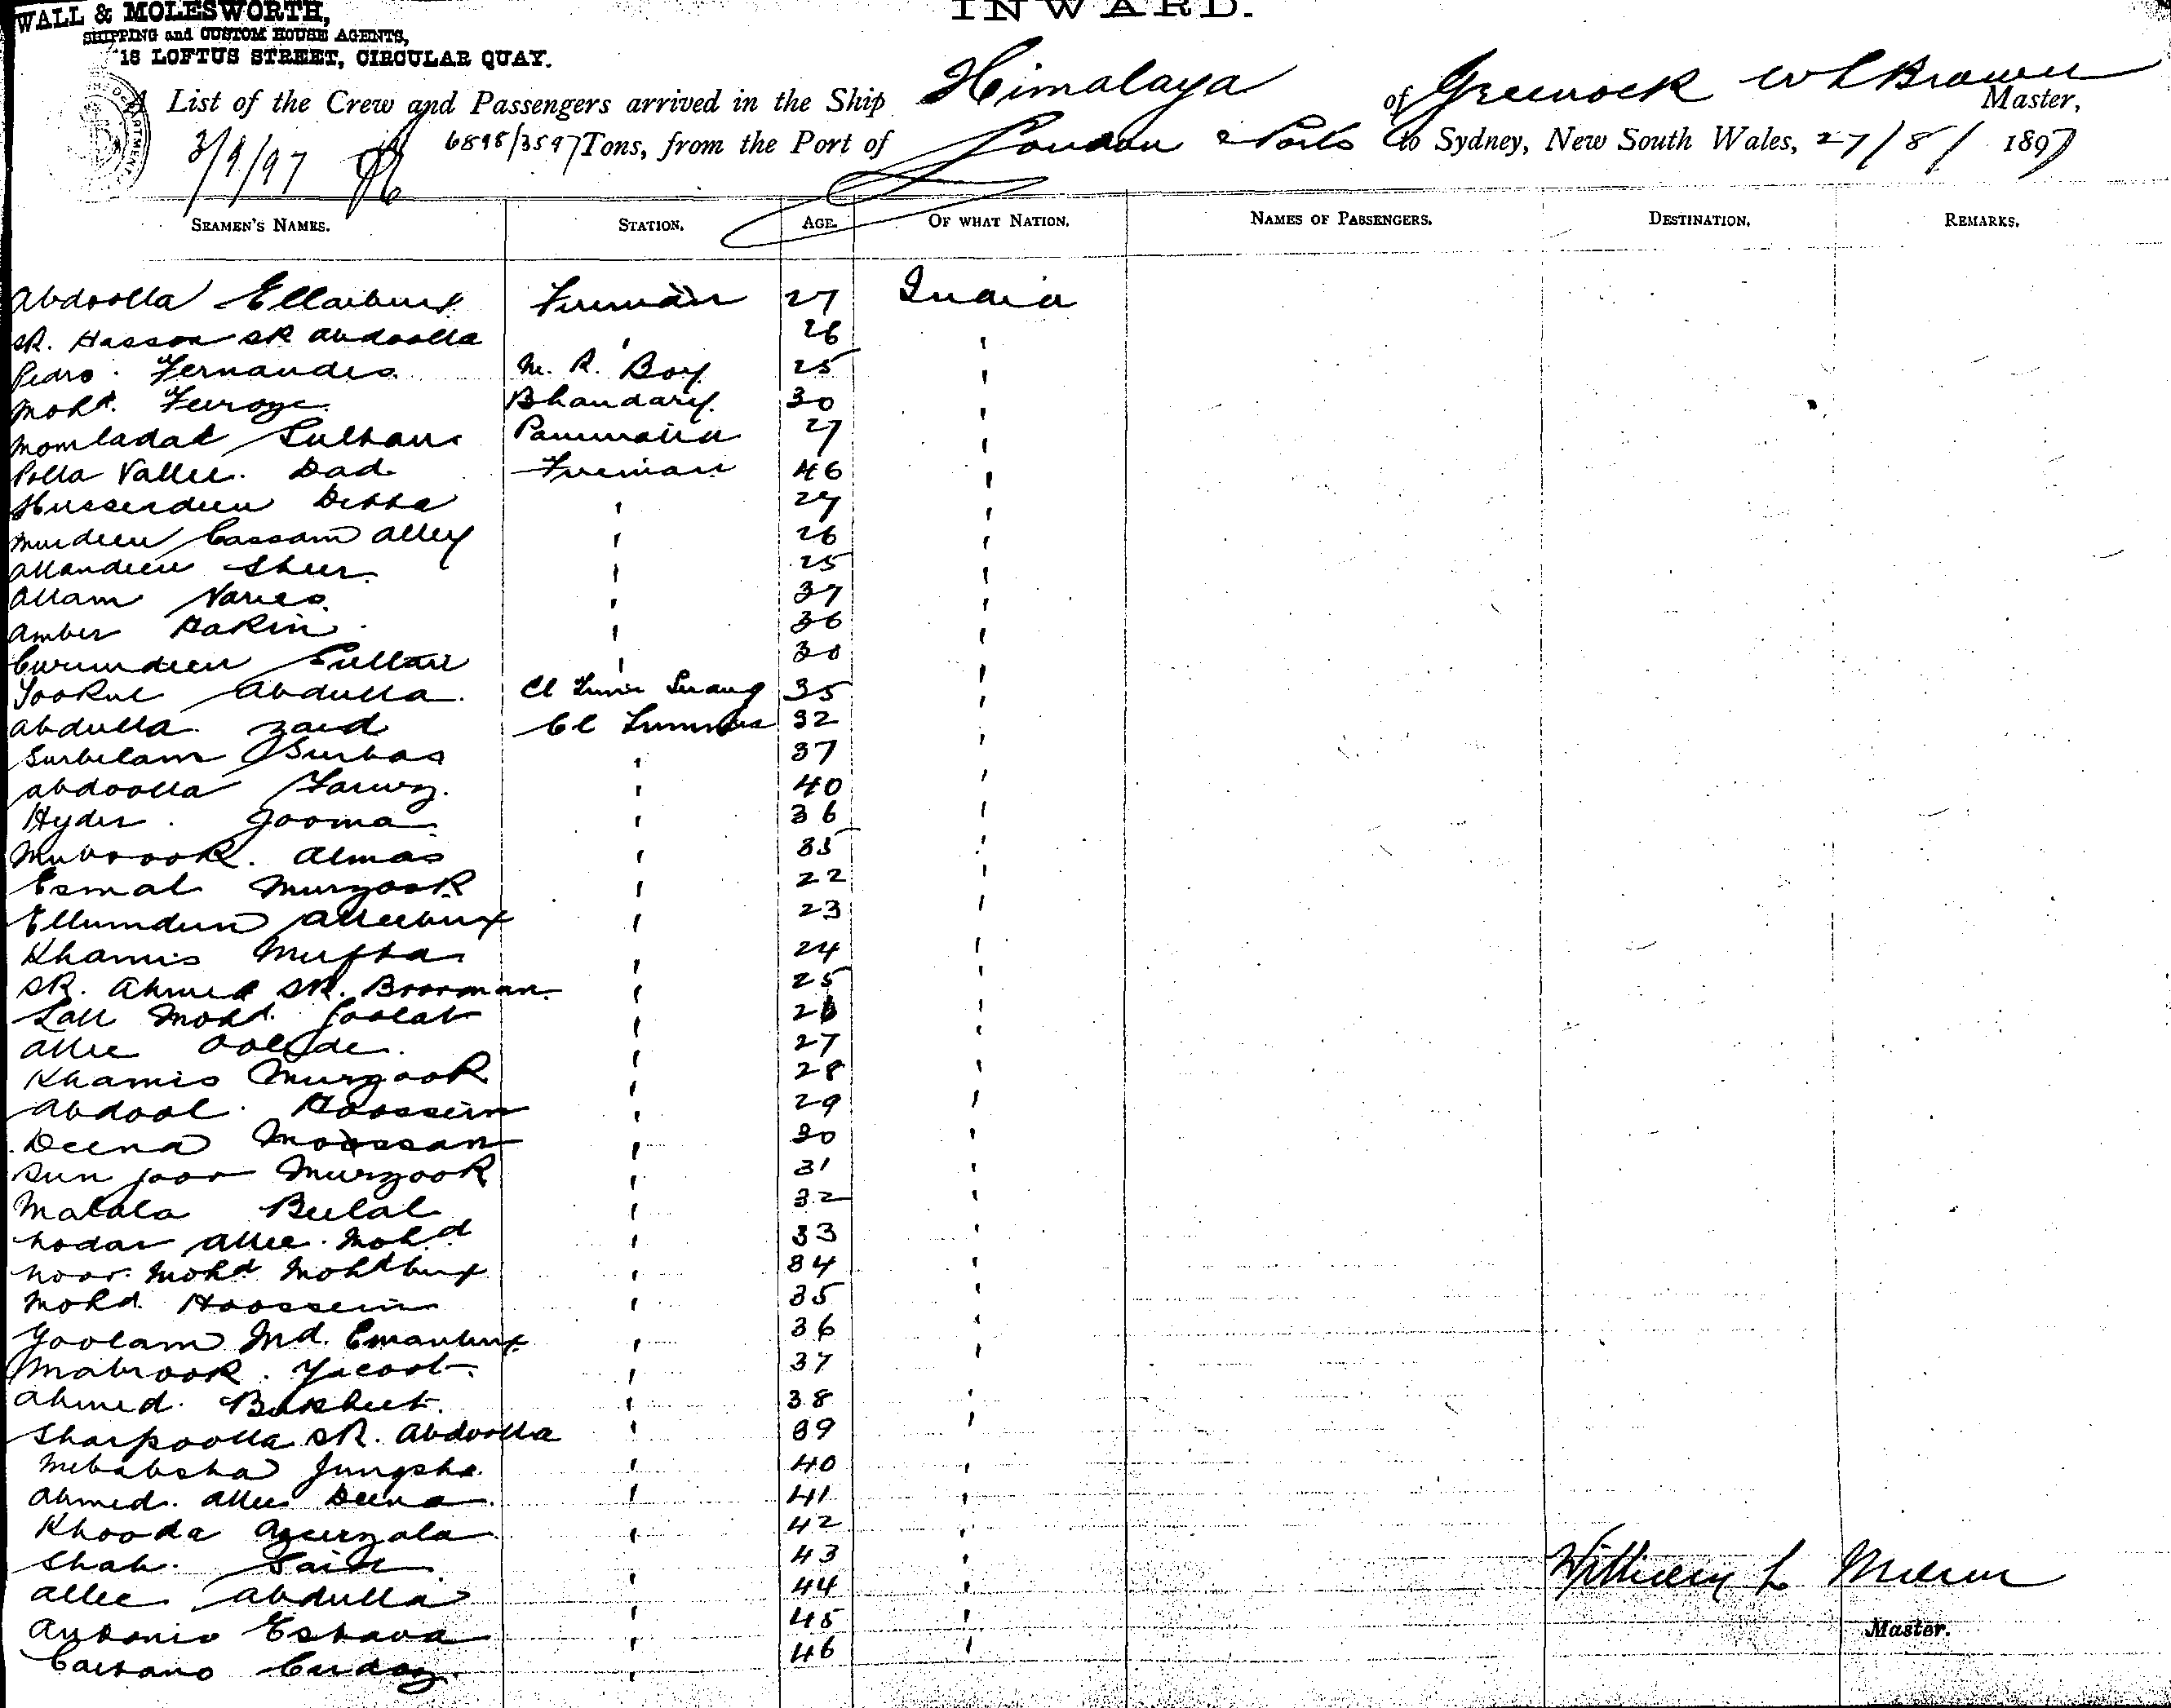 INWARD.
WALL & MOLESWORTH,
SHIPPING and CUSTOM HOUSE AGENTS,
18 LOFTUS STREET, CIRCULAR QUAY.
A List of the Crew and Passengers arrived in the Ship Himalaya of Greenock W L Brown Master,
3/9/97 6898/3597 Tons, from the Port of London & Ports to Sydney, New South Wales, 27/8/ 1897
SEAMEN'S NAMES. STATION. AGE. OF WHAT NATION. NAMES OF PASSENGERS. DESTINATION. REMARKS.
Abdoolla Ellaibux Fireman 27 India
SR. Hasson SR Abdoolla ' 26 '
Pedro Fernandes M. R. Boy 25 '
Mohd. Feroze Bhandary 30 '
Momladat Sultan 27 '
Polla Vallee Dad Fireman 46 '
Husserdeen Ditta ' 27 '
Nurdeen Cassam Alley ' 26 '
Allandeen Sheer ' 25 '
Allam ' 37 '
Amber Hakin ' 36 '
Sultan ' 30 '
Yookul Abdulla 35 '
Abdulla Zaid 32 '
Surbelam Surbas ' 37 '
Abdoolla ' 40 '
Hyder Jooma ' 36 '
Mubrook Almas ' 35 '
Esmal Murzook ' 22 '
Ellumdin Alleebux ' 23 '
Khamis Mufta ' 24 '
SR. Ahmed SR. Booman ' 25 '
Lall Mohd. ' 26 '
Allee ' 27 '
Khamis Murzook ' 28 '
Abdool Hoossein ' 29 '
Deena Moossan ' 30 '
Sun joor Murzook ' 31 '
Matala Bulal ' 32 '
Nodar Allee Mohd ' 33 '
Noor Mohd Mohdbux ' 34 '
Mohd. Hoossein ' 35 '
Goolam Md. Emambux ' 36 '
Mabrook Yacoot ' 37 '
Ahmed Bakheet ' 38 '
Sharpoolla SR. Abdoolla ' 39 '
Jungsha ' 40 '
Ahmed Allee Deena ' 41 '
Khooda ' 42 '
Shah ' 43 '
Allee Abdulla ' 44 '
Antonio Estava ' 45 '
Caetano ' 46 '
William L
Master.